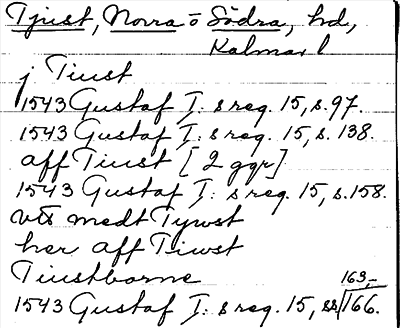 Tjust, Norra o Södra, hd,
Kalmar l
j Tiust
1543 Gustaf I: s reg. 15, s. 97.
1543 Gustaf I: s reg. 15, s. 138.
aff Tiust [2 ggr]
1543 Gustaf I: s reg. 15, s. 158.
medt Tywst
her aff Tiwst
Tiustborne
163,-
1543 Gustaf I: s reg. 15, ss 166.